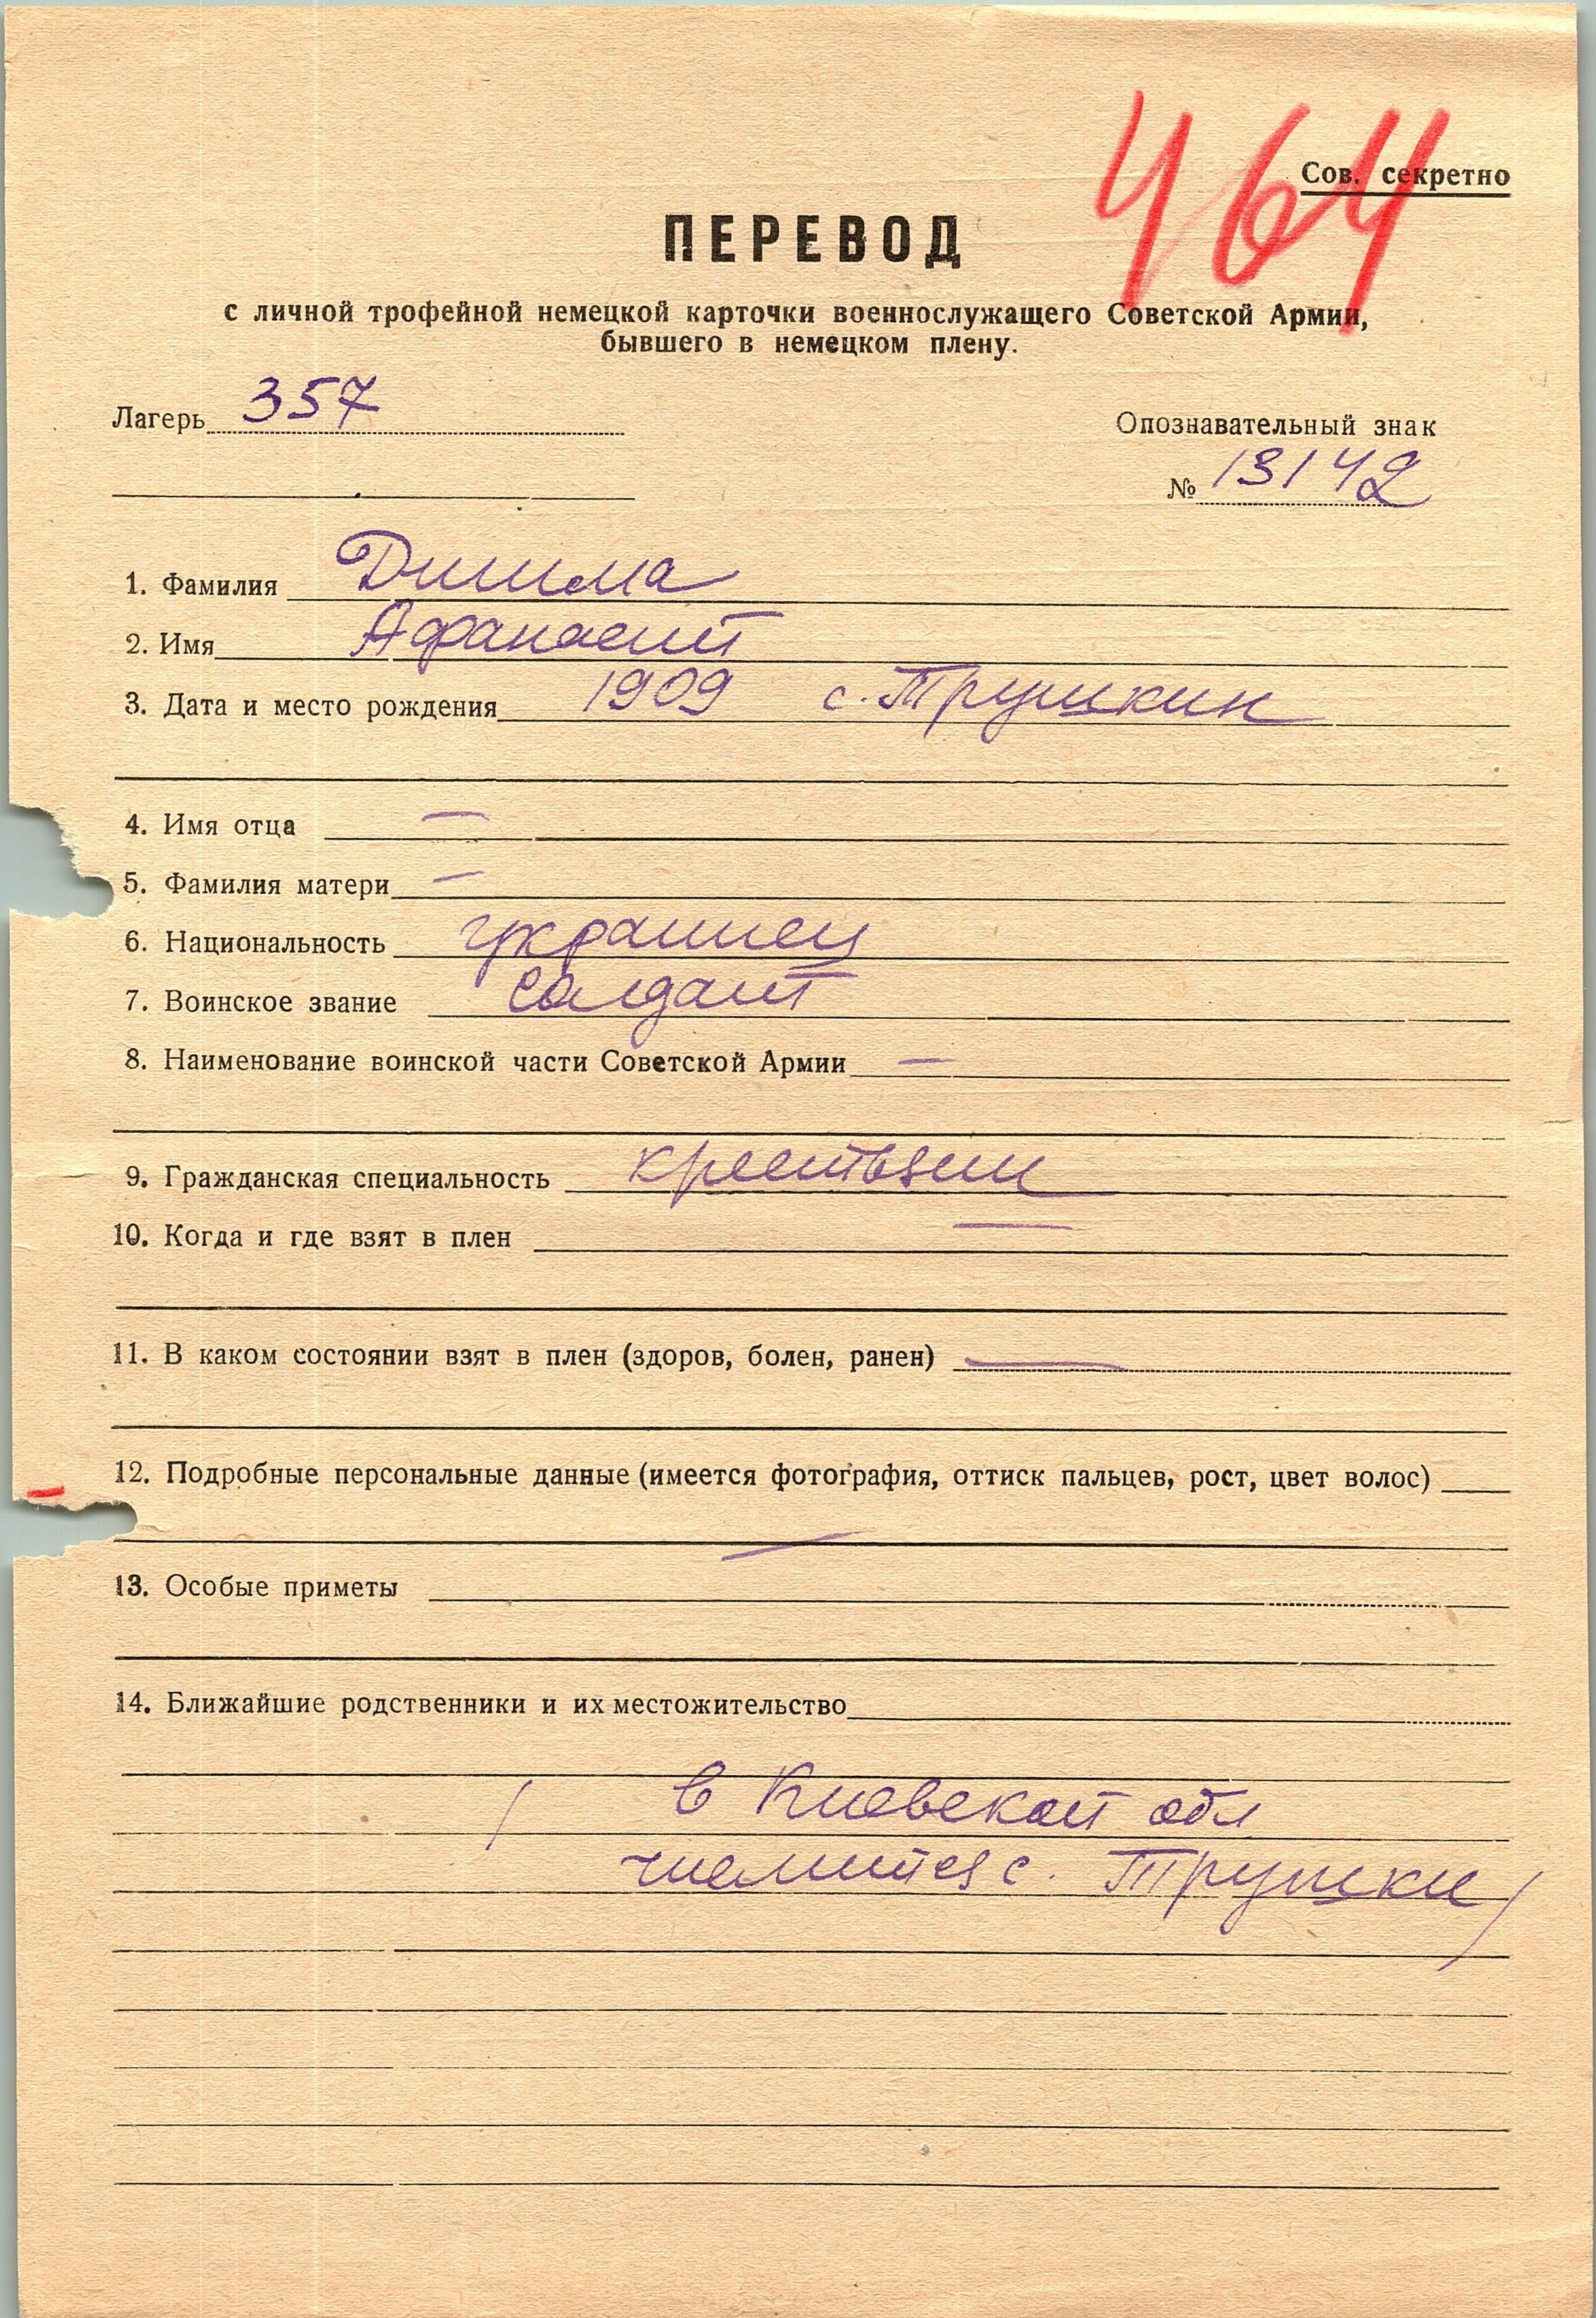 464
Сов. секретно
ПЕРЕВОД
с личной трофейной немецкой карточки военнослужащего Советской Армии,
бывшего в немецком плену.
Лагерь 357
Опознавательный знак
№ 13142
1. Фамилия
2. Имя Афанасий
3. Дата и место рождения 1909 с. Трушкин
4. Имя отца —
5. Фамилия матери —
6. Национальность украинец
7. Воинское звание солдат
8. Наименование воинской части Советской Армии —
9. Гражданская специальность
10. Когда и где взят в плен —
11. В каком состоянии взят в плен (здоров, болен, ранен) —
12. Подробные персональные данные (имеется фотография, оттиск пальцев, рост, цвет волос)
—
13. Особые приметы
14. Ближайшие родственники и их местожительство
/ в Киевской обл
числится с. Трушки /